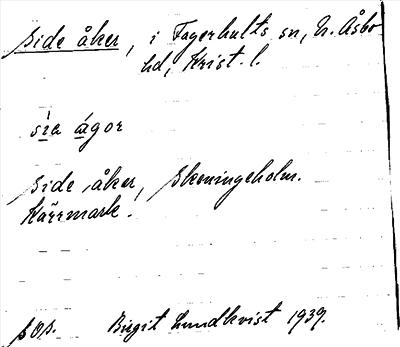 side åker, i Fagerhults sn, N. Åsbo
hd, Krist. l.
sía ágor
side åker, Skeningeholm.
Kärrmark.
sos. Birgit Lundkvist 1939.